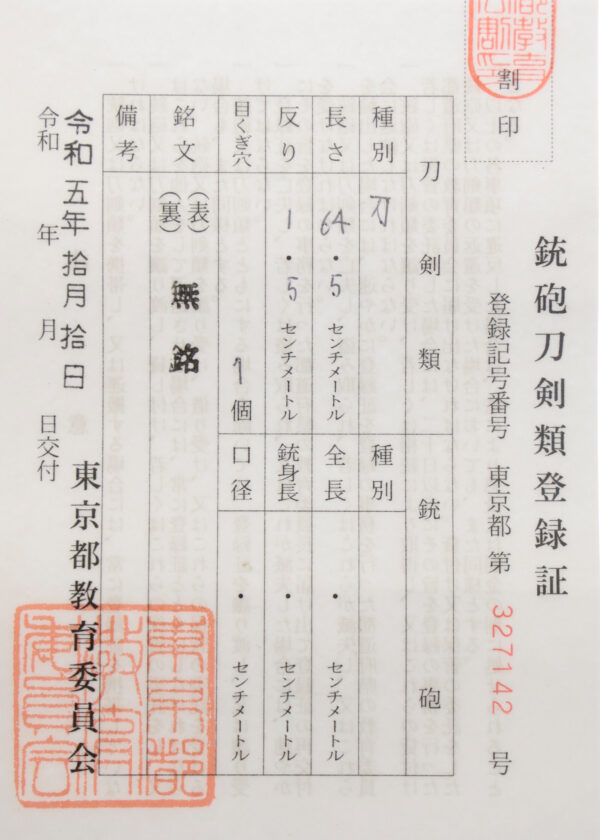 割印
銃砲刀剣類登録証
登録記号番号 東京都 第 327142 号
刀剣類
銃砲
種別 刀
種別
長さ 64・5 センチメートル
全長 ・ センチメートル
反り 1・5 センチメートル
銃身長 ・ センチメートル
目くぎ穴 1個
口径 ・ センチメートル
銘文 (表) 無銘
(裏)
備考
令和五年拾月拾日
令和 年 月 日交付
東京都教育委員会
東京都教育委員会